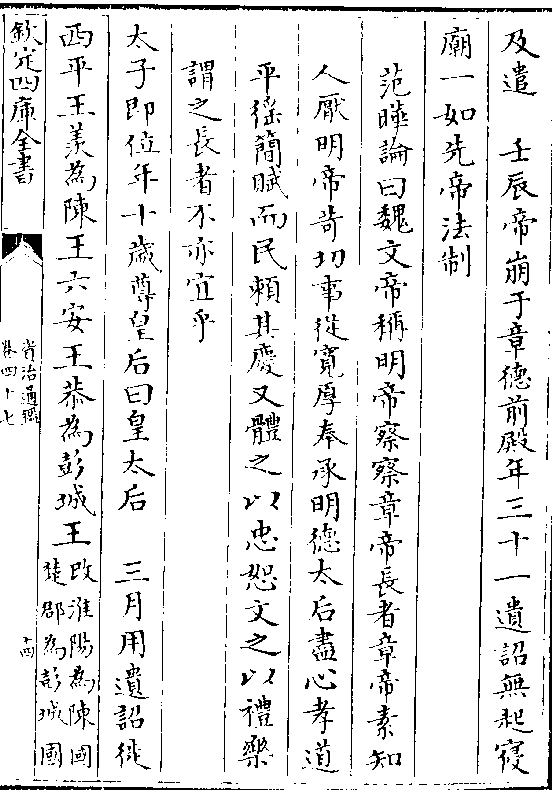 及遣　壬辰帝崩于章德前殿年三十一遺詔無起寢
廟一如先帝法制
范曄論曰魏文帝稱明帝察察章帝長者章帝素知
人厭明帝苛切事從寛厚奉承明德太后盡心孝道
平徭簡賦而民頼其慶又體之以忠恕文之以禮樂
謂之長者不亦宜乎
太子即位年十歲尊皇后曰皇太后　三月用遺詔徙
西平王羨為陳王六安王恭為彭城王改淮陽為陳國楚郡為彭城國
欽定四庫全書
資治通鑑
卷四十七
十四